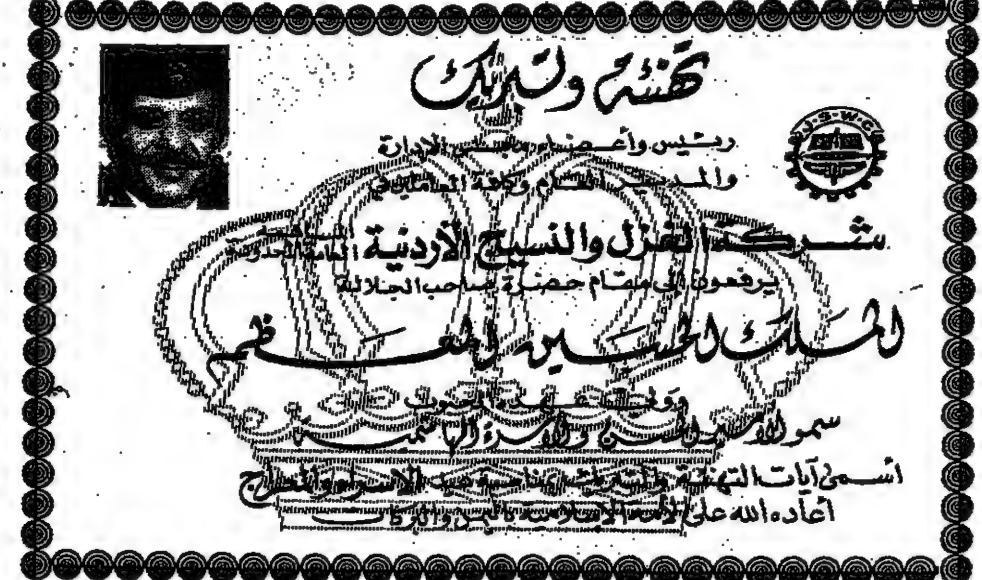 تهنئة وتبريك
J.S.W.C
رئيس وأعضاء مجلس الإدارة
والمدير العام وكافة العاملين في
شركة الغزل والنسيج الأردنية المساهمة العامة المحدودة
يرفعون إلى مقام حضرة صاحب الجلالة
الملك الحسين المعظم
وولي عهده المحبوب
سمو الأمير الحسن والأسرة الهاشمية
أسمى آيات التهنئة والتبريك بمناسبة عيد الإسراء والمعراج
أعاده الله على الأمة الإسلامية باليمن والبركات